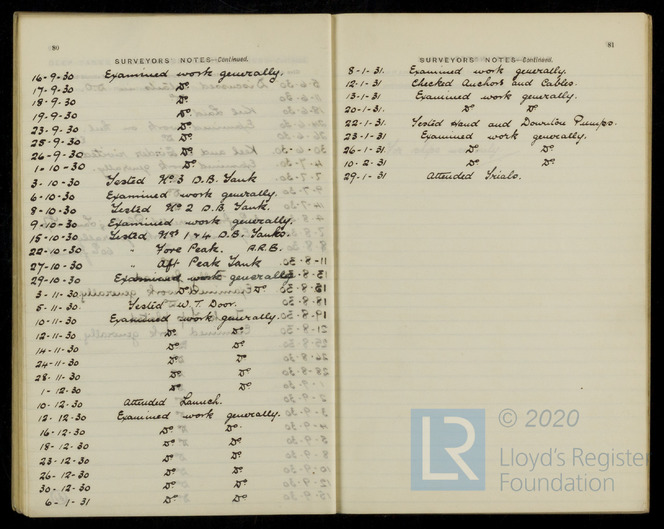 80
SURVEYORS' NOTES—Continued.
16-9-30 Examined work generally.
17-9-30 Do
18-9-30 Do
19-9-30 Do
23-9-30 Do
25-9-30 Do
26-9-30 Do
1-10-30 Do
3-10-30 Tested No 3 D.B. Tank
6-10-30 Examined work generally.
8-10-30 Tested No 2 D.B. Tank.
9-10-30 Examined work generally.
15-10-30 Tested Nos 1 & 4 D.B. Tanks.
22-10-30 " Fore Peak. A.R.B.
27-10-30 " Aft Peak Tank
29-10-30 Examined work generally
3-11-30 Do Do
5-11-30 Tested W.T. Door.
10-11-30 Examined work generally.
12-11-30 Do Do
14-11-30 Do Do
24-11-30 Do Do
28-11-30 Do Do
1-12-30 Do Do
10-12-30 Attended Launch.
12-12-30 Examined work generally.
16-12-30 Do Do
18-12-30 Do Do
23-12-30 Do Do
26-12-30 Do Do
30-12-30 Do Do
6-1-31 Do Do
81
SURVEYORS' NOTES—Continued.
8-1-31. Examined work generally.
12-1-31. Checked Anchors and Cables.
13-1-31. Examined work generally.
20-1-31. Do Do
22-1-31. Tested Hand and Downton Pumps.
23-1-31 Examined work generally.
26-1-31 Do Do
10-2-31 Do Do
29-1-31 Attended Trials.
LR
© 2020
Lloyd's Register
Foundation